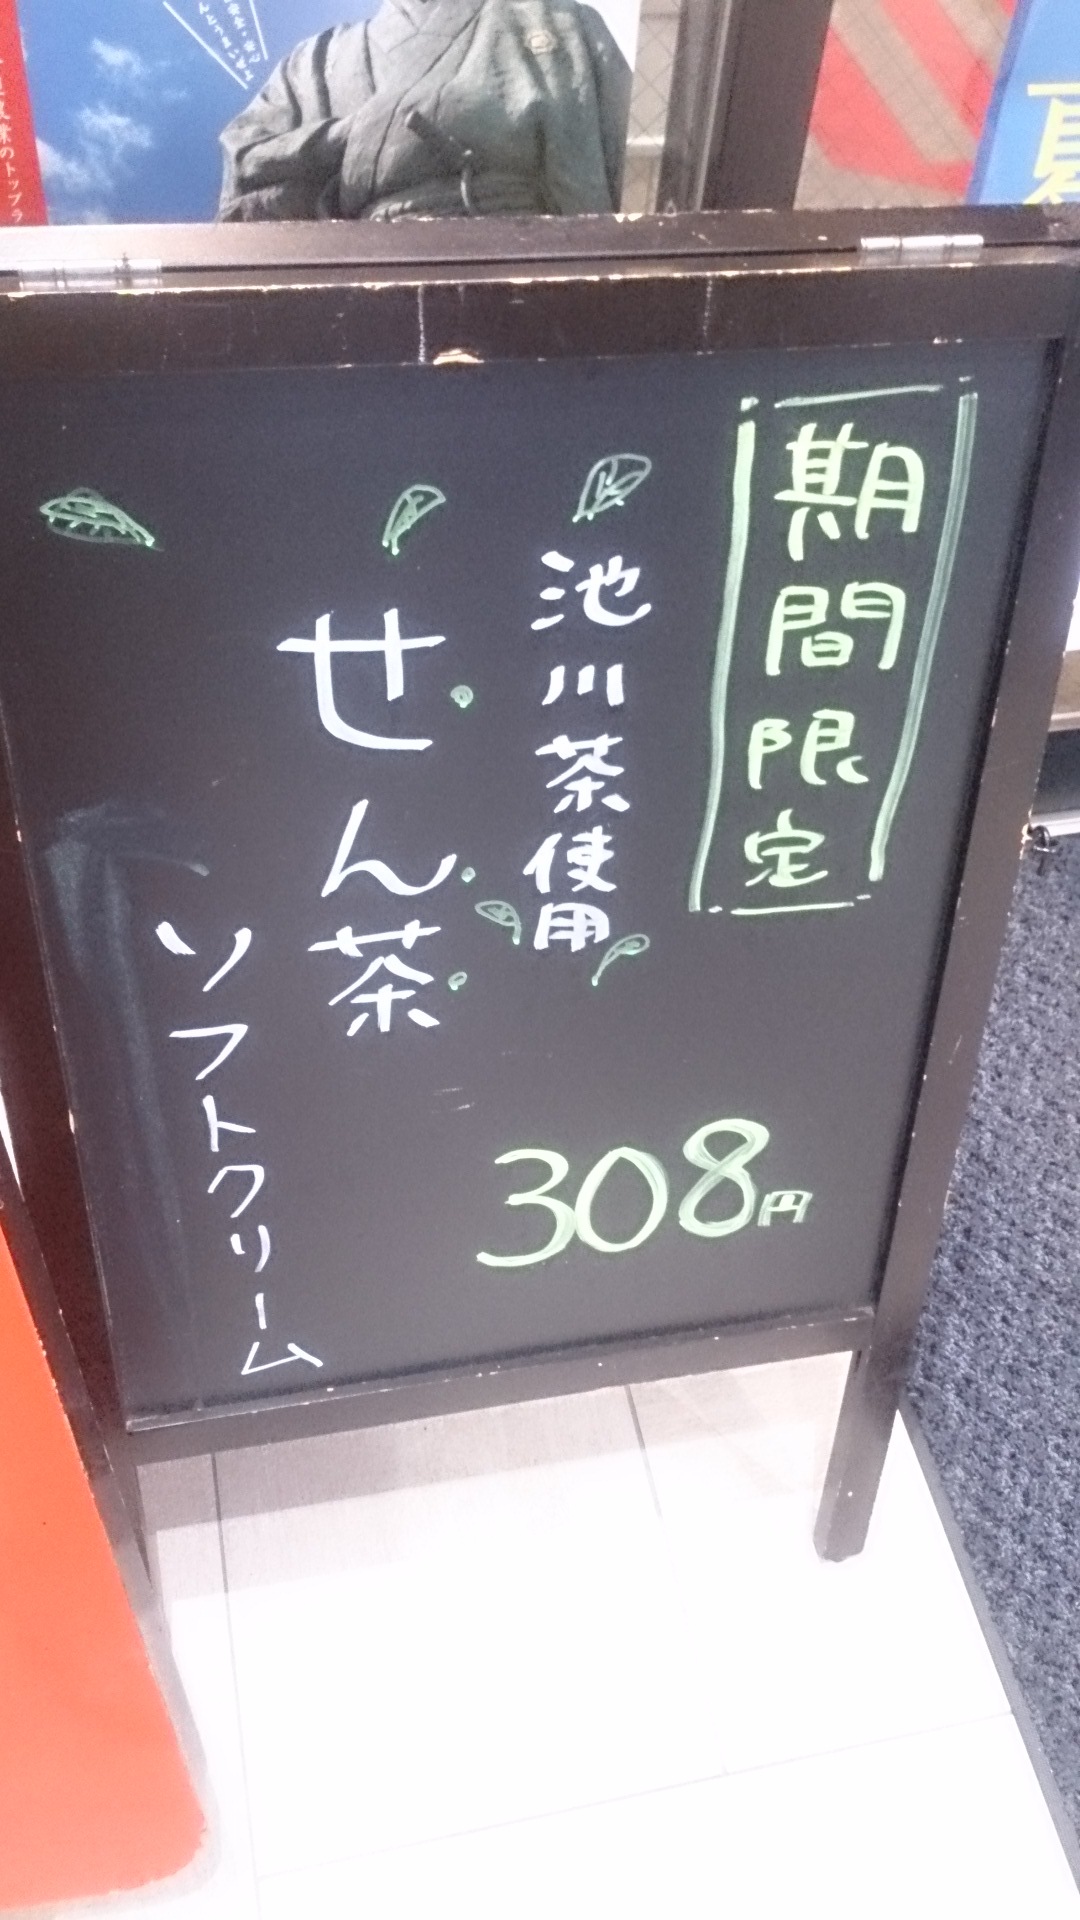 期間限定
池川茶使用
せん茶
ソフトクリーム
308円
夏